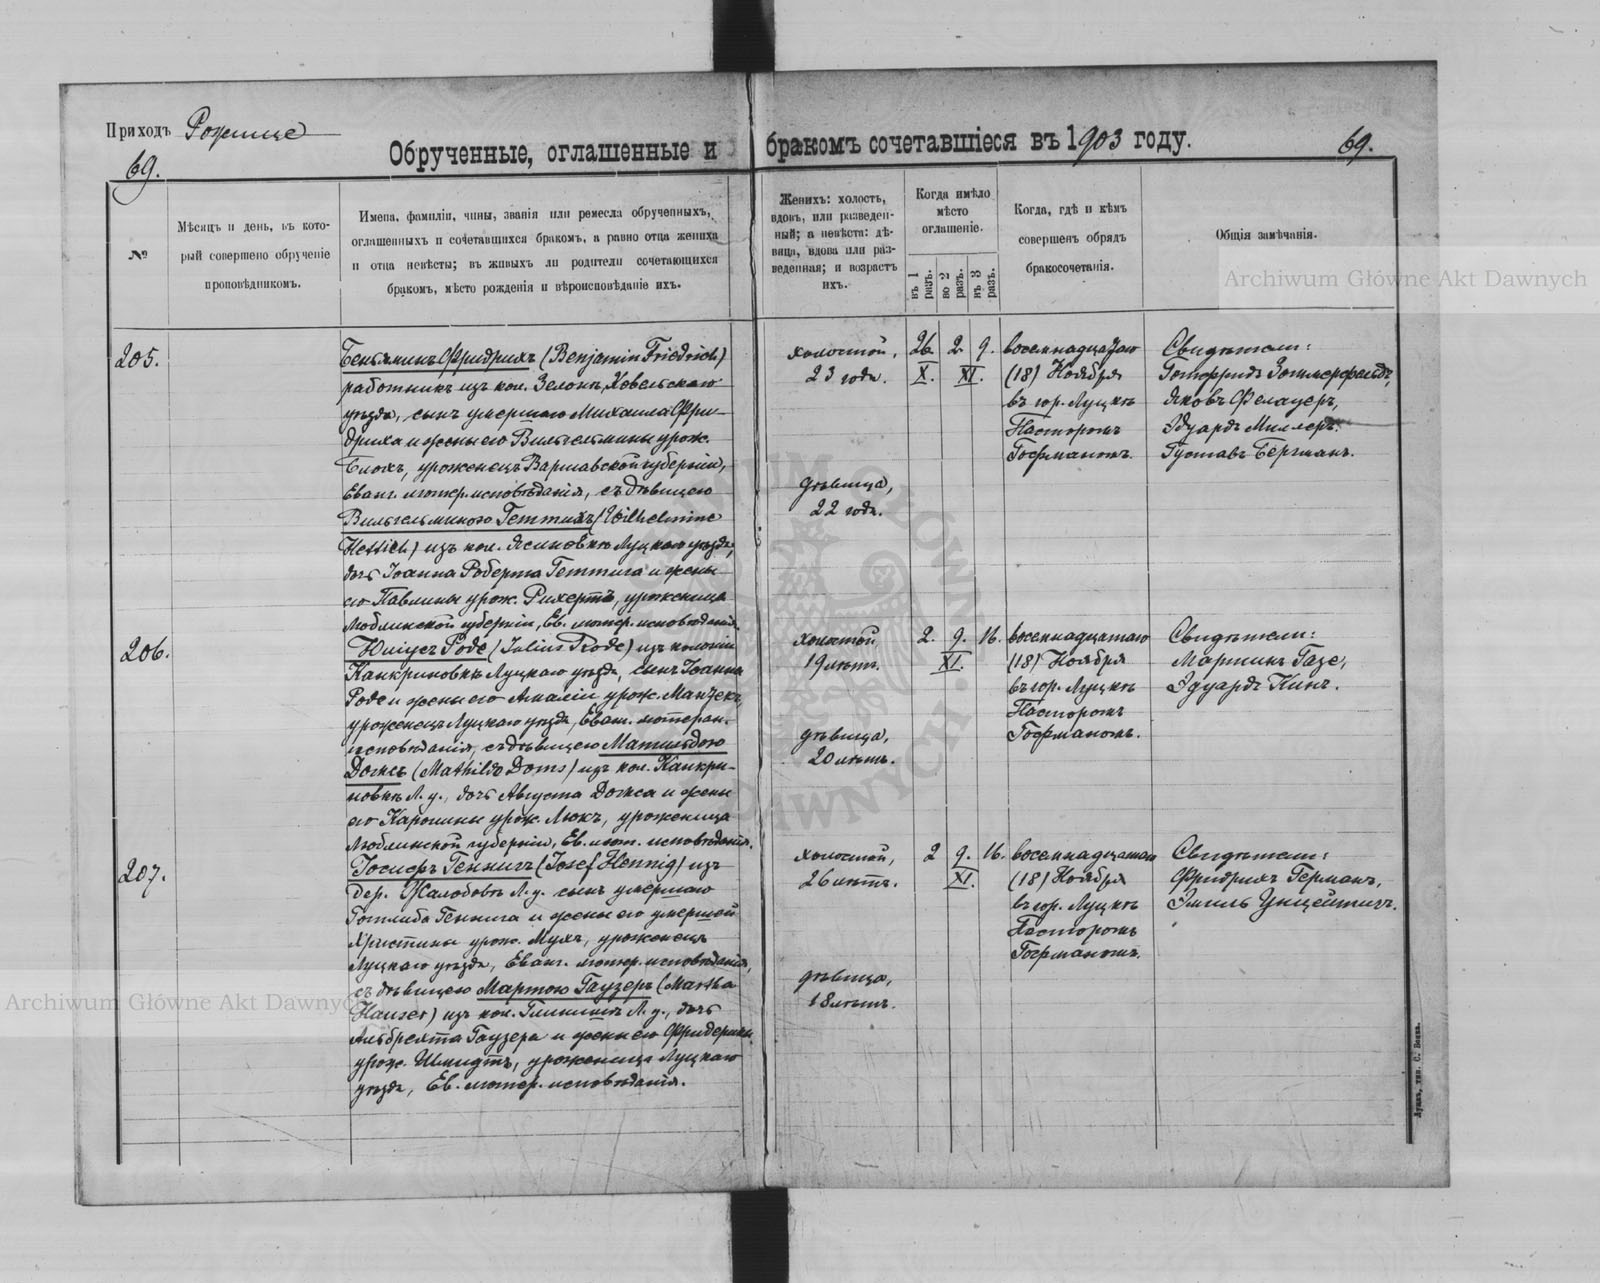 Приходъ Рожище
69.
Обрученные, оглашенные и бракомъ сочетавшіеся въ 1903 году.
69.
№
Мѣсяцъ и день, въ кото-
рый совершено обрученіе
проповѣдникомъ.
Имена, фамиліи, чины, званія или ремесла обрученныхъ,
оглашенныхъ и сочетавшихся бракомъ, а равно отца жениха
и отца невѣсты; въ живыхъ ли родители сочетающихся
бракомъ, мѣсто рожденія и вѣроисповѣданіе ихъ.
Женихъ: холостъ,
вдовъ, или разведен-
ный; а невѣста: дѣ-
вица, вдова или раз-
веденная; и возрастъ
ихъ.
Когда имѣло
мѣсто
оглашеніе.
въ 1 разъ.
во 2 разъ.
въ 3 разъ.
Когда, гдѣ и кѣмъ
совершенъ обрядъ
бракосочетанія.
Общія замѣчанія.
205.
Беньяминъ Фридрихъ (Benjamin Friedrich)
работникъ изъ кол. Зелона, Ковельскаго
уѣзда, сынъ умершаго Михаила Фри-
дриха и жены его Вильгельмины урож.
Блокъ, уроженецъ Варшавской губерніи,
Еванг. лютер. исповѣданія, съ дѣвицею
Вильгельминою Геттихъ (Wilhelmine
Hettich) изъ кол. Ясиновкѣ Луцкаго уѣзда,
дочь Іоанна Роберта Геттиха и жены
его Павлины урож. Рихертъ, уроженица
Люблинской губерніи, Ев. лютер. исповѣданія.
холостой,
23 года.
дѣвица,
22 года.
26. 2. 9.
X. XI.
восемнадцатаго
(18) Ноября
въ гор. Луцкѣ
Пасторомъ
Гофманомъ.
Свидѣтели:
Готфридъ Зоммерфельдъ,
Яковъ Фелауеръ,
Эдуардъ Миллеръ.
Густавъ Бергманъ.
206.
Юліусъ Роде (Julius Rode) изъ колоніи
Канкриновкѣ Луцкаго уѣзда, сынъ Іоанна
Роде и жены его Амаліи урож. Манзекъ,
уроженецъ Луцкаго уѣзда, Еванг. лютеран.
исповѣданія, съ дѣвицею Матильдою
Домсъ (Mathilde Doms) изъ кол. Канкри-
новкѣ Л. у., дочь Августа Домса и жены
его Каролины урож. Люкъ, уроженица
Люблинской губерніи, Ев. лют. исповѣданія.
холостой
19 лѣтъ.
дѣвица,
20 лѣтъ.
2. 9. 16.
XI.
восемнадцатаго
(18) Ноября
въ гор. Луцкѣ
Пасторомъ
Гофманомъ.
Свидѣтели:
Мартинъ Газе,
Эдуардъ Кинъ.
207.
Іосифъ Геннигъ (Josef Hennig) изъ
дер. Жалобовкѣ Л. у. сынъ умершаго
Готлиба Геннига и жены его умершей
Христины урож. Мухъ, уроженецъ
Луцкаго уѣзда, Еванг. лютер. исповѣданія,
съ дѣвицею Мартою Гаузеръ (Martha
Hauser) изъ кол. Глинищъ Л. у., дочь
Альбрехта Гаузера и жены его Фридерики
урож. Шмидтъ, уроженица Луцкаго
уѣзда, Ев. лютер. исповѣданія.
холостой,
26 лѣтъ.
дѣвица,
18 лѣтъ.
2 9. 16.
XI.
восемнадцатаго
(18) Ноября
въ гор. Луцкѣ
Пасторомъ
Гофманомъ.
Свидѣтели:
Фридрихъ Германъ,
Эмиль
Archiwum Główne Akt Dawnych
Archiwum Główne Akt Dawnych